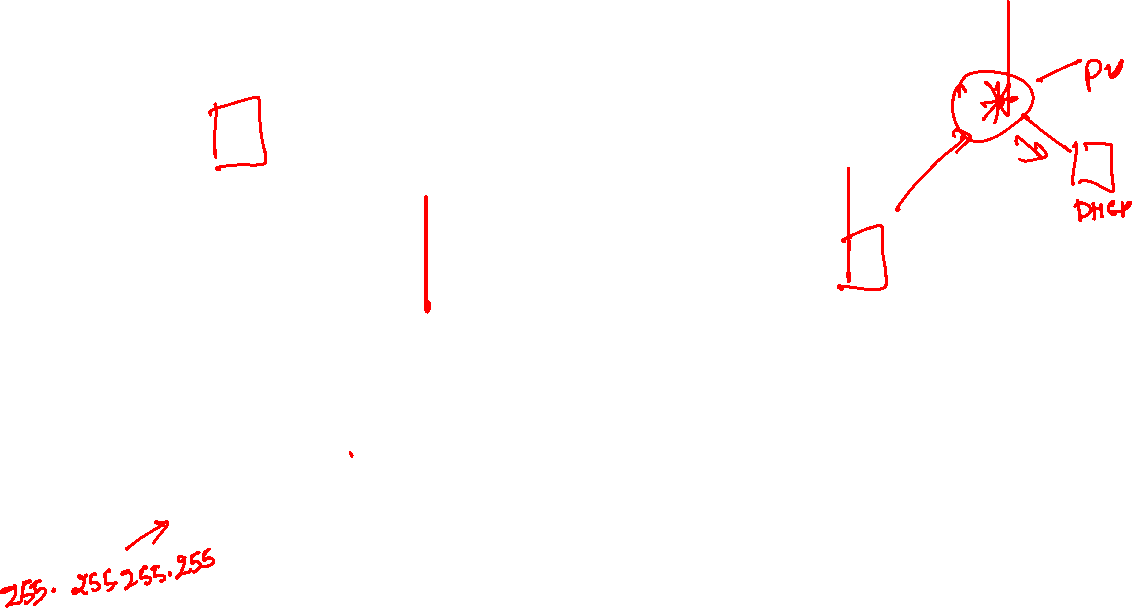 PV
DHCP
255. 255 255.255